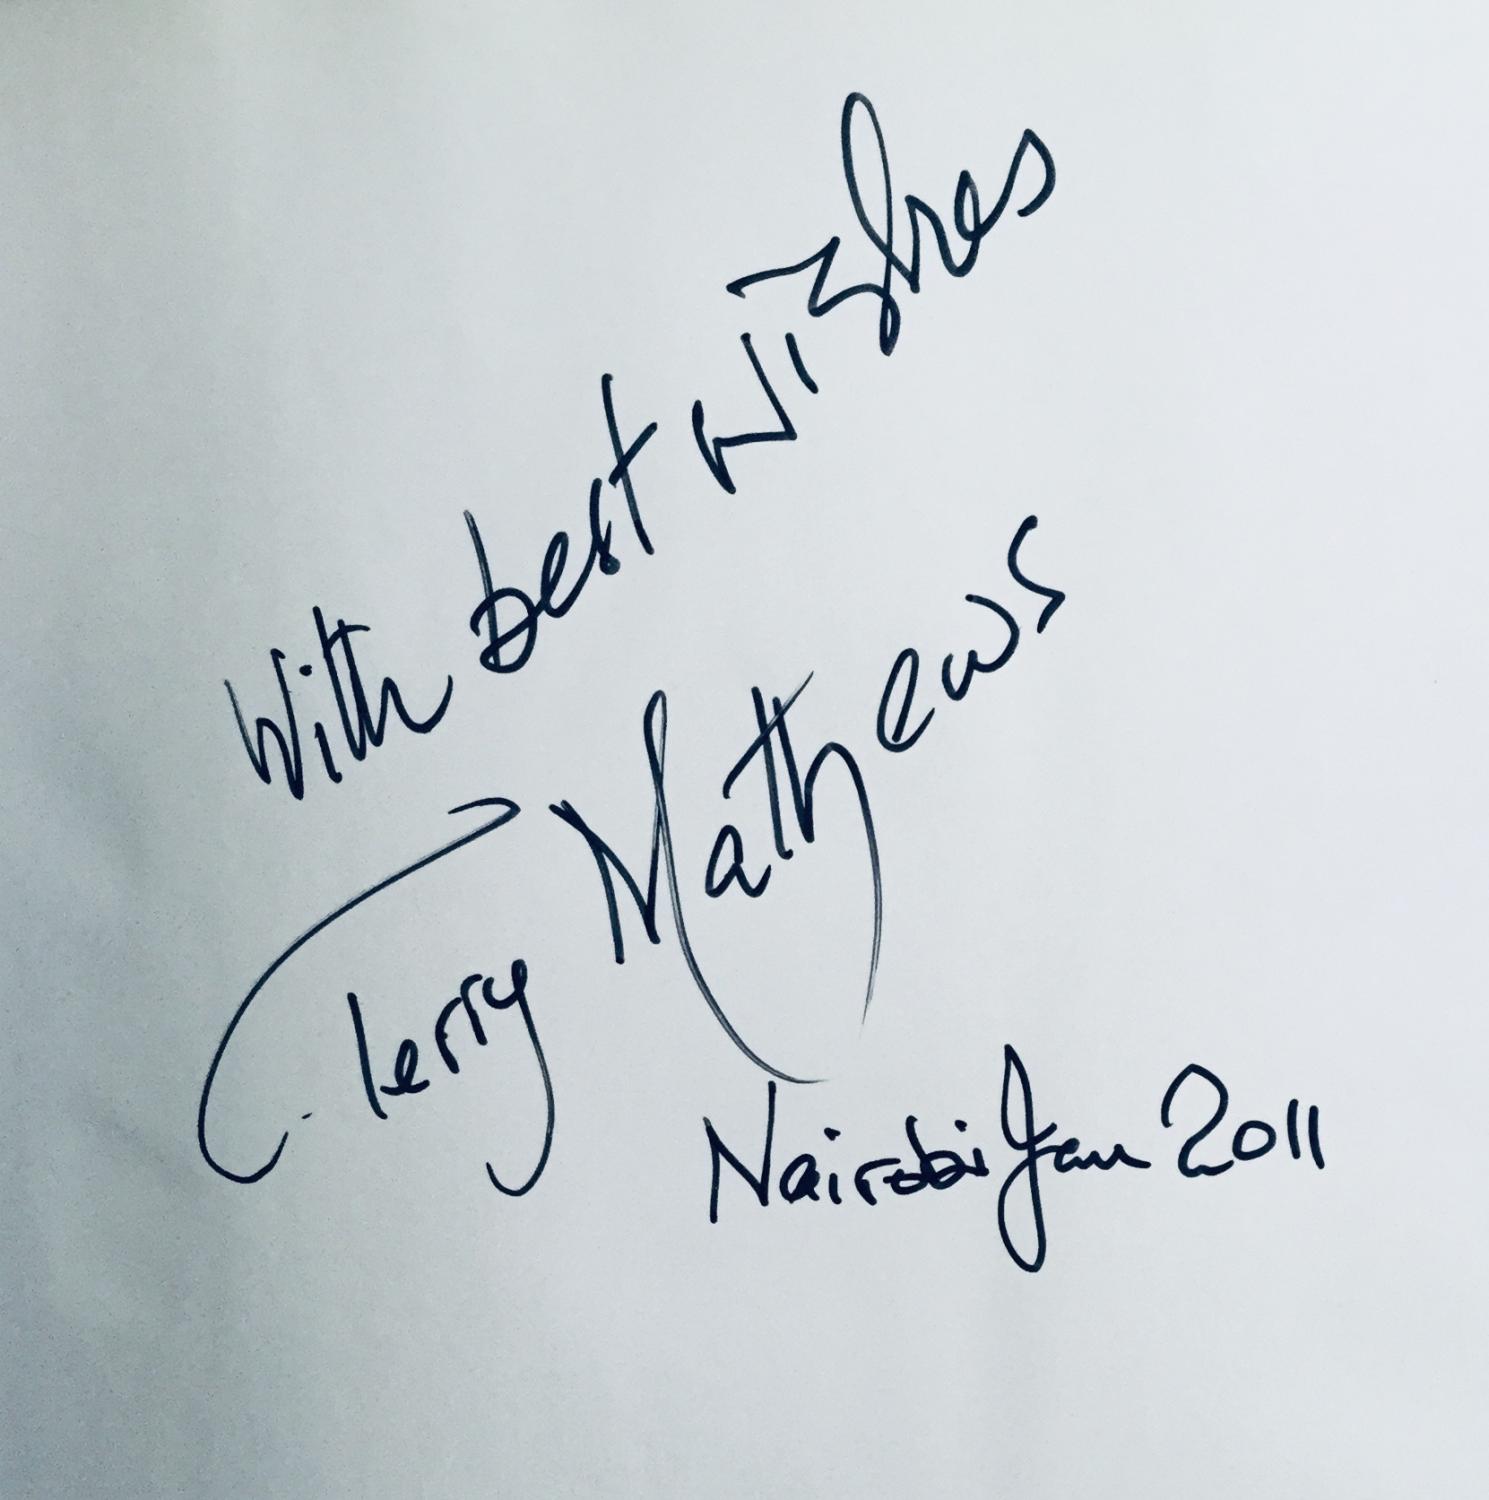 With best wishes
Terry Mathews
Nairobi Jan 2011